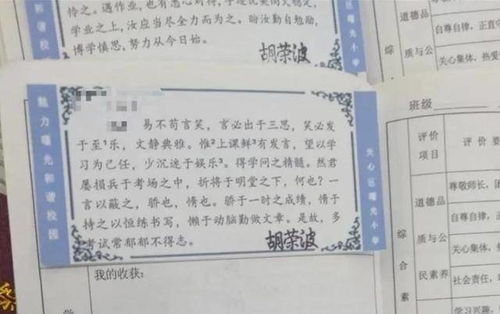 持之。遇作业,也有悉心对待,
学业之上,汝应当尽全力而为之。盼汝勤自勉励,
博学慎思,努力从今日始。
胡荣波
魅力曙光和谐校园
易不苟言笑,言必出于三思,笑必发
于至¹乐,文静典雅。惟²上课鲜³有发言,望以学
习为己任,少沉迷于娱乐³。得学问之精髓。然君
屡损兵于考场之中,折将于明堂之下,何也?一
言以蔽之,骄也,惰也。骄于一时之成绩,惰于
持之以恒练书写,懒于动脑勤做文章。是故,多
考试常郁郁不得志。
胡荣波
曙光小学
我的收获:
学
综
质与公
道德品
自尊自律,正直
关心集体,热爱
班级
评价
项目
评价要
综合素
道德品
质与公
民素养
尊敬师长,团
自尊自律,
关心集体,
社会责任,
学习兴趣,